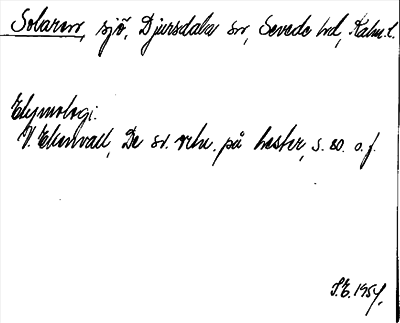 Solaren, sjö, Djursdala sn, Sevede hd, Kalm. l.
Etymologi:
V. Ekenvall, De sv. ortn. på hester, s. 80. o. f.
S.E. 1954.